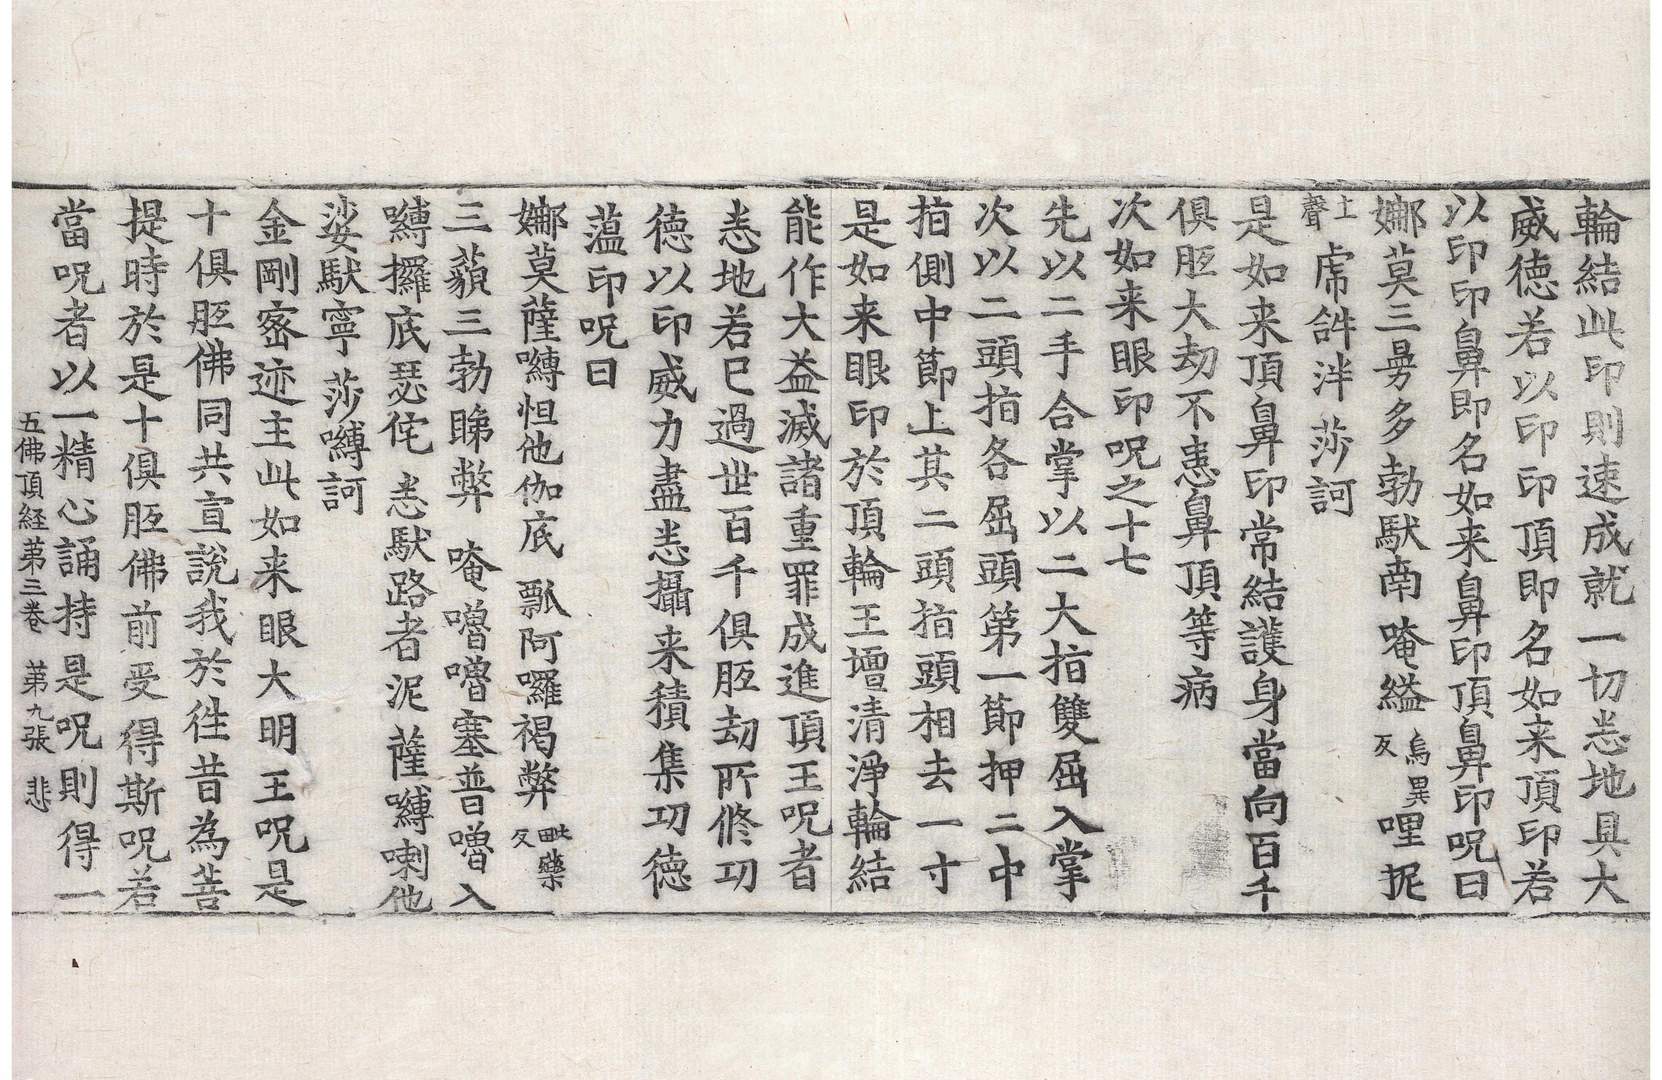 輪結此印則速成就一切悉地具大
威德若以印印頂即名如来頂印若
以印印鼻即名如来鼻印頂鼻印呪曰
娜莫三曼多勃馱南唵縊烏異反哩抳
上聲虎𤙖泮莎訶
是如来頂鼻印常結護身當向百千
俱胝大劫不患鼻頂等病
次如来眼印呪之十七
先以二手合掌以二大指雙屈入掌
次以二頭指各屈頭第一節押二中
指側中節上其二頭指頭相去一寸
是如来眼印於頂輪王壇清淨輪結
能作大益滅諸重罪成進頂王呪者
悉地若已過世百千俱胝劫所修功
德以印威力盡悉攝来積集功德
蕰印呪曰
娜莫薩嚩怛他伽底瓢阿囉褐弊毗藥反
三藐三勃睇弊唵嚕嚕塞普嚕入
嚩攞底瑟侘悉馱路者泥薩嚩喇他
娑馱寧莎嚩訶
金剛密迹主此如来眼大明王呪是
十俱胝佛同共宣說我於往昔為菩
提時於是十俱胝佛前受得斯呪若
當呪者以一精心誦持是呪則得一
五佛頂経第三卷 第九張 悲